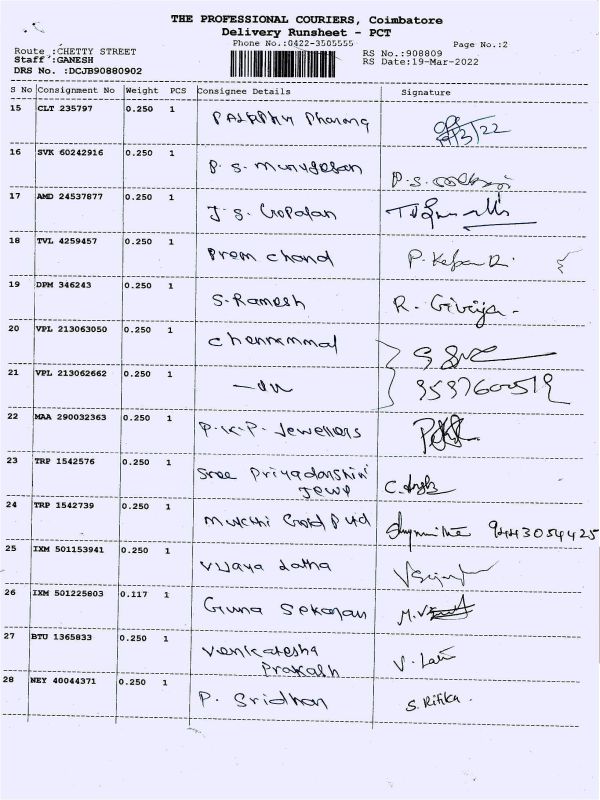 THE PROFESSIONAL COURIERS, Coimbatore
Delivery Runsheet - PCT
Phone No.:0422-3505555
Page No.:2
Route :CHETTY STREET
Staff :GANESH
DRS No. :DCJB90880902
RS No.:908809
RS Date:19-Mar-2022
S No Consignment No Weight PCS Consignee Details Signature
15 CLT 235797 0.250 1
19/3/22
16 SVK 60242916 0.250 1
P. S. Murugesan
P. S.
17 AMD 24537877 0.250 1
J. S. Gopalan
18 TVL 4259457 0.250 1
Prem chand P.
19 DPM 346243 0.250 1
S. Ramesh R. Girija
20 VPL 213063050 0.250 1
Chennammal
21 VPL 213062662 0.250 1
22 MAA 290032363 0.250 1
P.K.P. Jewellers
23 TRP 1542576 0.250 1
Sree Priyadarshini
Jewe C.
24 TRP 1542739 0.250 1
Mukthi Gold 9443054425
25 IXM 501153941 0.250 1
Vijaya Latha
26 IXM 501225803 0.117 1
Guna Sekaran
27 BTU 1365833 0.250 1
Venkatesha
Prakash V.
28 NEY 40044371 0.250 1
P. Sridhar S. Ritika